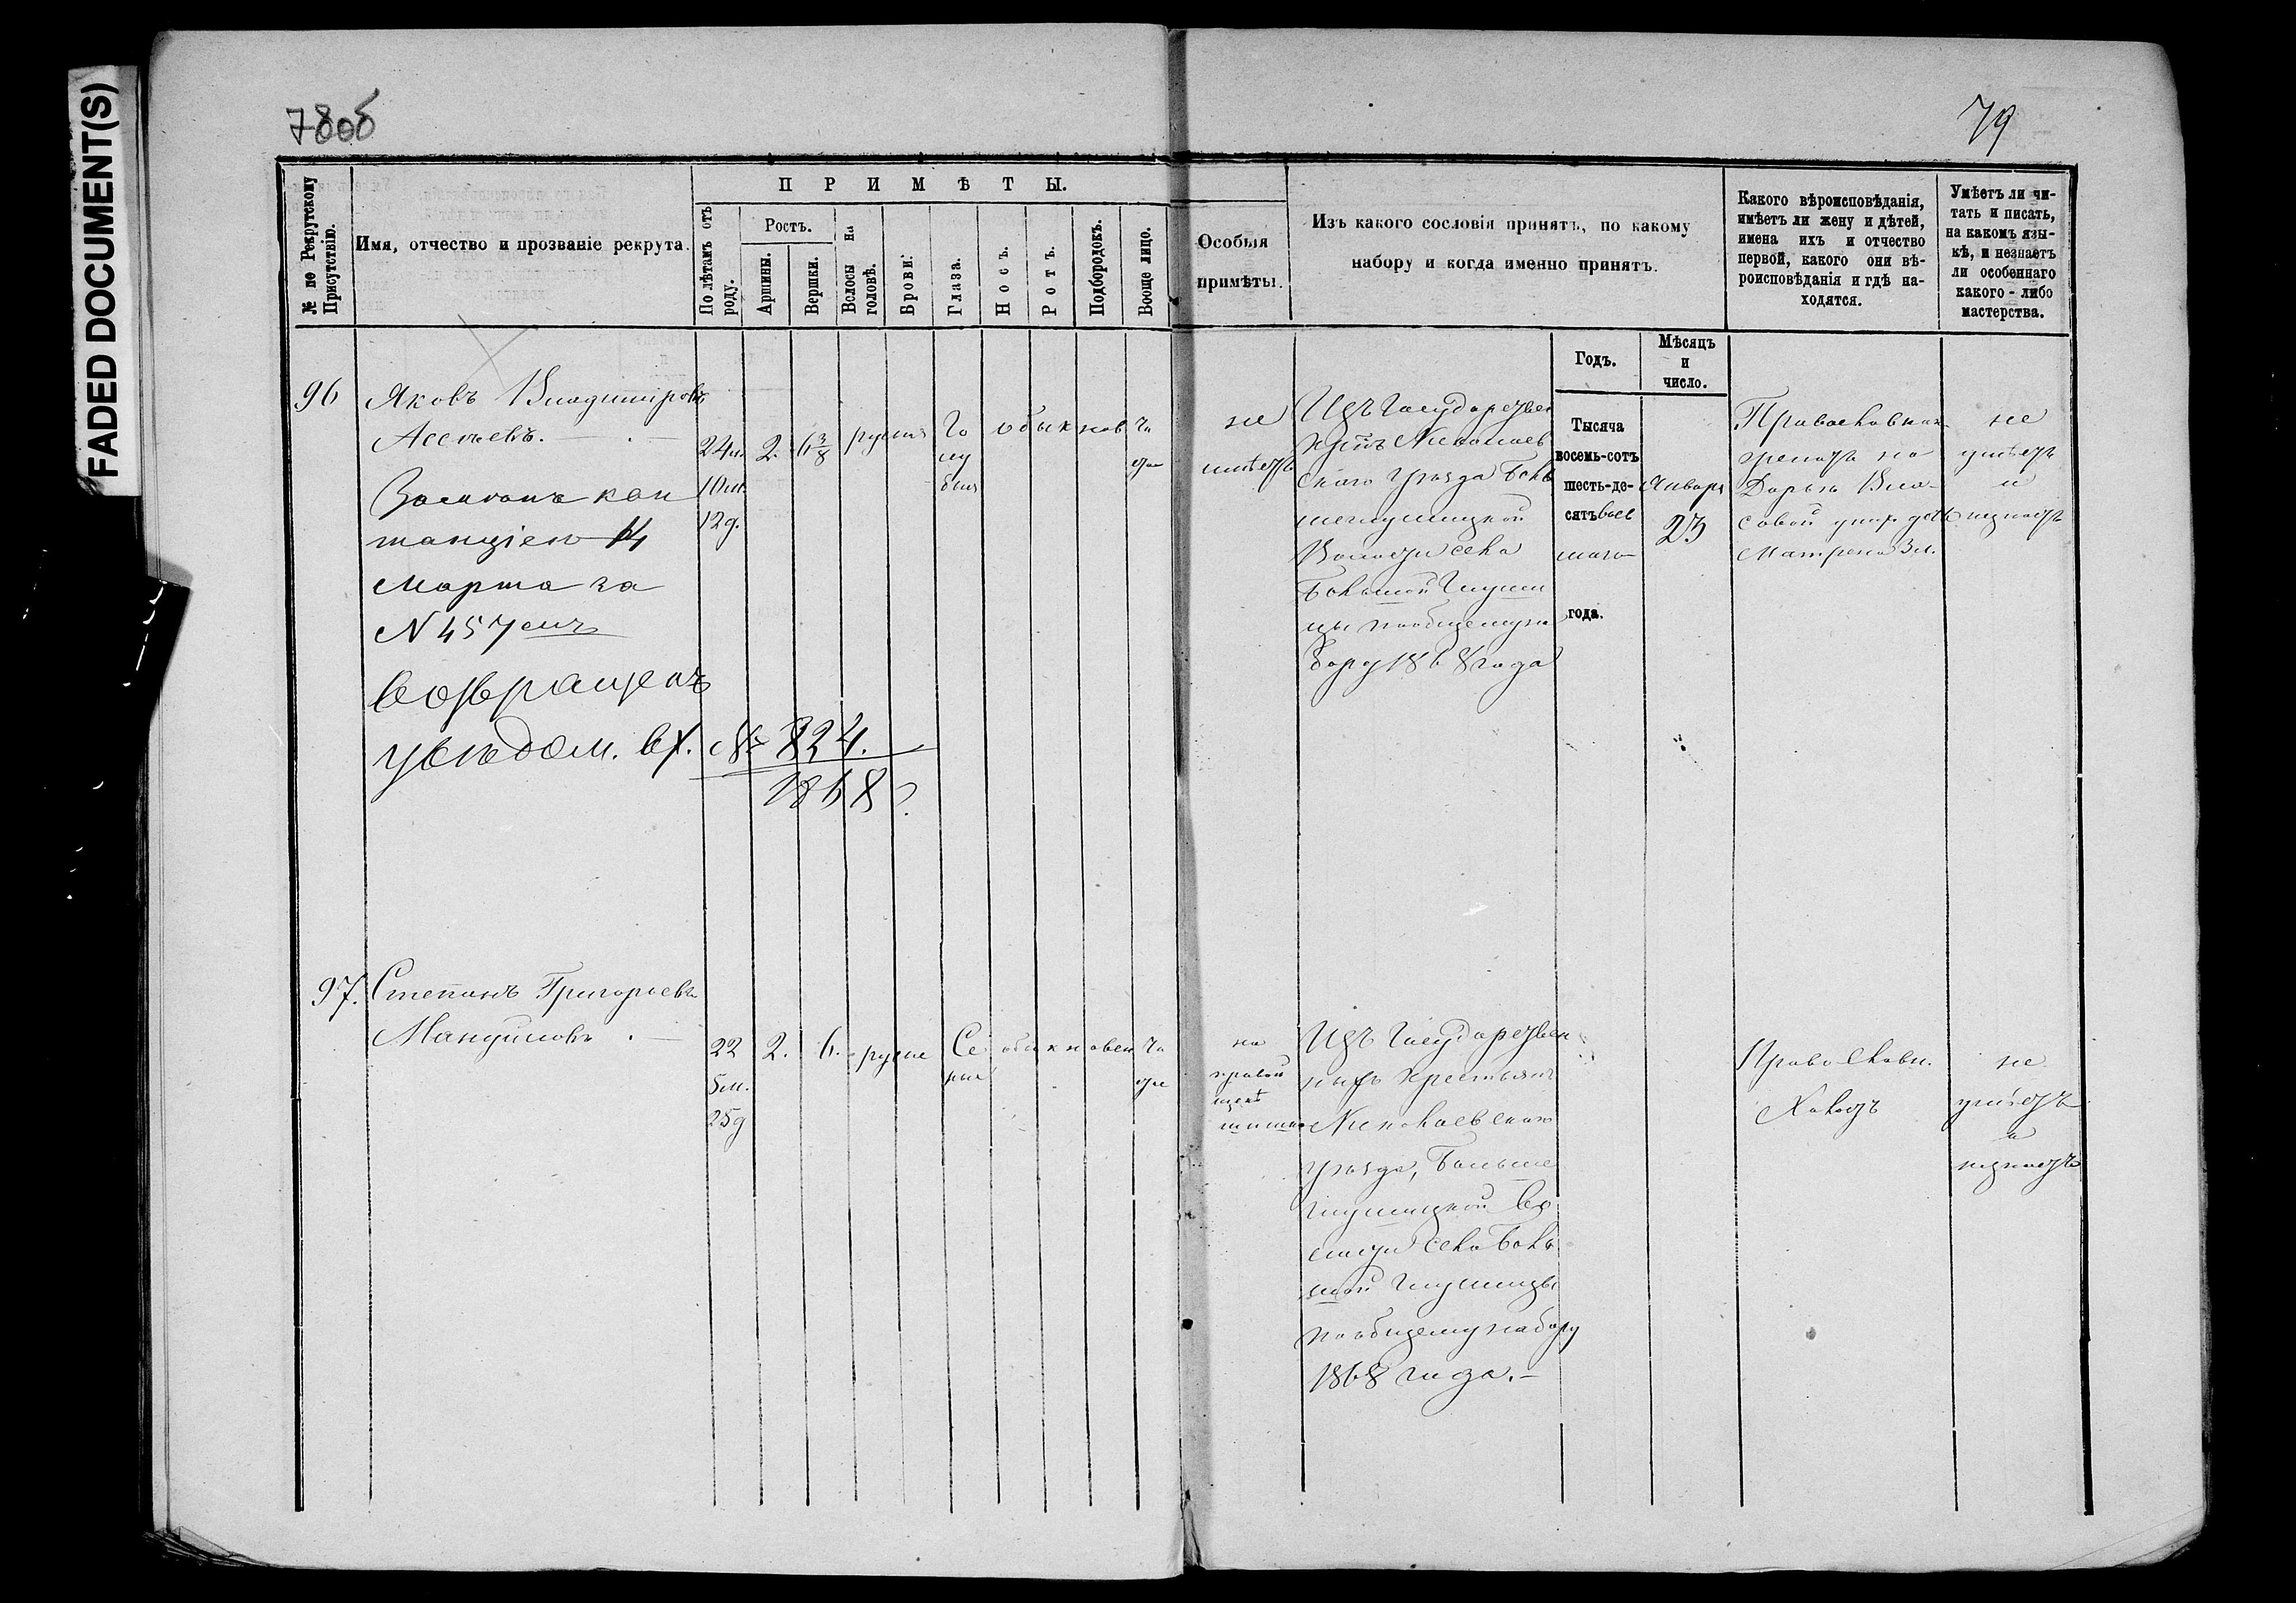 FADED DOCUMENT(S)
78об
79
№ по Рекрутскому Присутствію.
Имя, отчество и прозваніе рекрута.
ПРИМѢТЫ.
По лѣтамъ отъ роду.
Ростъ.
Аршины.
Вершки.
Волосы на головѣ.
Брови.
Глаза.
Носъ.
Ротъ.
Подбородокъ.
Вообще лицо.
Особыя
примѣты.
Изъ какого сословія принятъ, по какому
набору и когда именно принятъ.
Какого вѣроисповѣданія,
имѣетъ ли жену и дѣтей,
имена ихъ и отчество
первой, какого они вѣ-
роисповѣданія и гдѣ на-
ходятся.
Умѣетъ ли чи-
тать и писать,
на какомъ язы-
кѣ, и незнаетъ
ли особеннаго
какого-либо
мастерства.
Годъ.
Мѣсяцъ
и
число.
96
Яковъ Владиміровъ
Асеевъ.
Зачетною кви
танціею 14
Марта за
N 457
возвращенъ
увѣдом. вх. № 824.
1868 г.
24л.
10м.
12д.
2.
6 3/8
русыя
Го
лу
быя
обыкнов
чи
стое
не
имѣетъ
Изъ Государствен
Николаев
скаго Уѣзда Боль
шеглушицкой
Волости села
Большой Глуши
цы пообщему на
бору 1868 года
Тысяча
восемь-сотъ
шесть-де-
сятъ вось
маго
года.
Января
23
Православнаго
женатъ на
Дарьѣ Вла-
совой у нихъ дочь
Матрена 3 м.
не
умѣетъ
и
незнаетъ
97.
Степанъ Григорьевъ
Мануйловъ.
22
5м.
25д
2.
6.
русые
Се
рые
обыкновен
чи
стое
на
правой
щекѣ
шишка
Изъ Государствен
ныхъ крестьянъ
Николаевскаго
уѣзда, Больше
глушицкой во
лости села Боль
шой Глушицы
пообщему набору
1868 года.
Православн.
Холостъ
не
умѣетъ
и
незнаетъ